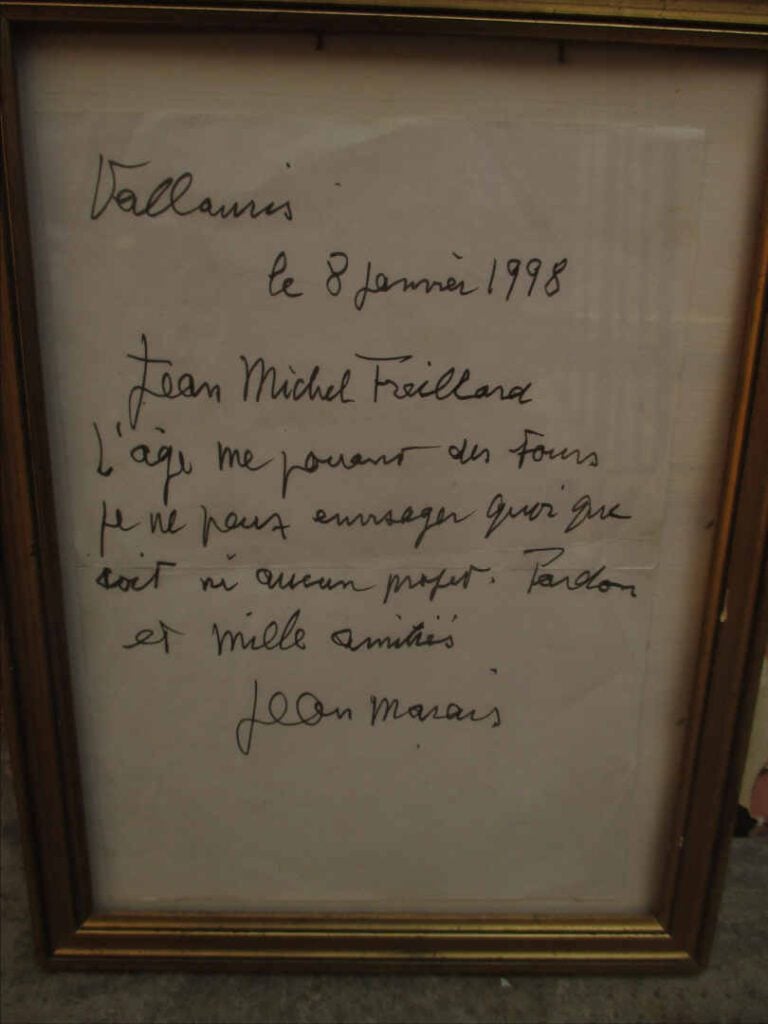 Vallauris
le 8 janvier 1998
Jean Michel Freillard
L'âge me jouant des tours
je ne peux envisager quoi que
soit ni aucun projet. Pardon
et mille amitiés
Jean Marais